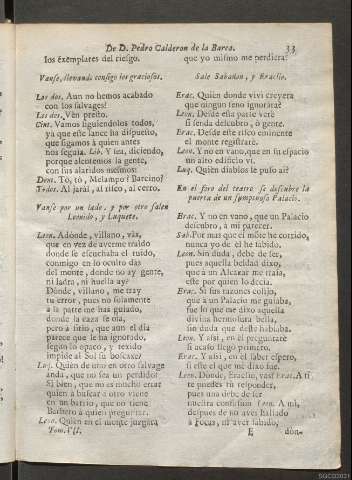 De D. Pedro Calderon de la Barca. 33
los exemplares del riesgo.
Vanse, llevando consigo los graciosos.
Los dos. Aun no hemos acabado
con los salvages?
Los dos. Vèn presto.
Cint. Vamos siguiendolos todos,
ya que este lance ha dispuesto,
que sigamos à quien antes
nos seguia. Lib. Y sea, diciendo,
porque alentemos la gente,
con sus alaridos mesmos:
Dent. Tò, tò, Melampo? Barcino?
Todos. Al jaral, al risco, al cerro.
Vanse por un lado, y por otro salen
Leonido, y Luquete.
Leon. Adònde, villano, vàs,
que en vez de averme traido
donde se escuchaba el ruido,
conmigo en lo oculto dàs
del monte, donde no ay gente,
ni ladra, ni huella ay?
Dònde, villano, me tray
tu error, pues no solamente
à la parte me has guiado,
donde la caza se oìa,
pero à sitio, que aun el dia
parece que le ha ignorado,
segun lo opaco, y texido
impide al Sol su boscaxe?
Luq. Quien de uno en otro salvage
anda, que no sea un perdido?
Si bien, que no es mucho errar
quien à buscar à otro viene
en un barrio, que no tiene
Barbero à quien preguntar.
Leon. Quien en el monte juzgàra
Tom. VII.
que yo mismo me perdiera?
Sale Sabañon, y Eraclio.
Erac. Quien donde vivì creyera
que ningun seno ignoràra?
Leon. Desde esta parte verè
si senda descubro, ò gente.
Erac. Desde este risco eminente
el monte registrarè.
Leon. Y no en vano, que en su espacio
un alto edificio vì.
Luq. Quièn diablos le puso aì?
En el foro del teatro se descubre la
puerta de un sumptuoso Palacio.
Erac. Y no en vano, que un Palacio
descubro, à mi parecer.
Sab. Por mas que el mote he corrido,
nunca yo dè èl he sabido.
Leon. Sin duda, debe de ser,
pues aquella beldad dixo,
que à un Alcazar me traìa,
este por quien lo decia.
Erac. Si sus razones colijo,
que à un Palacio me guiaba,
fue lo que me dixo aquella
divina hermosura bella,
sin duda que deste hablaba.
Leon. Y assi, en èl preguntarè
si acaso llegò primero.
Erac. Y assi, en èl saber espero,
si este es el que me dixo fue.
Leon. Dònde, Eraclio, vàs? Erac. A tì
te puedes tù responder,
pues una debe de ser
nuestra confusion. Leon. A mì,
despues de no aver hallado
à Focas, ni aver sabido,
E don-